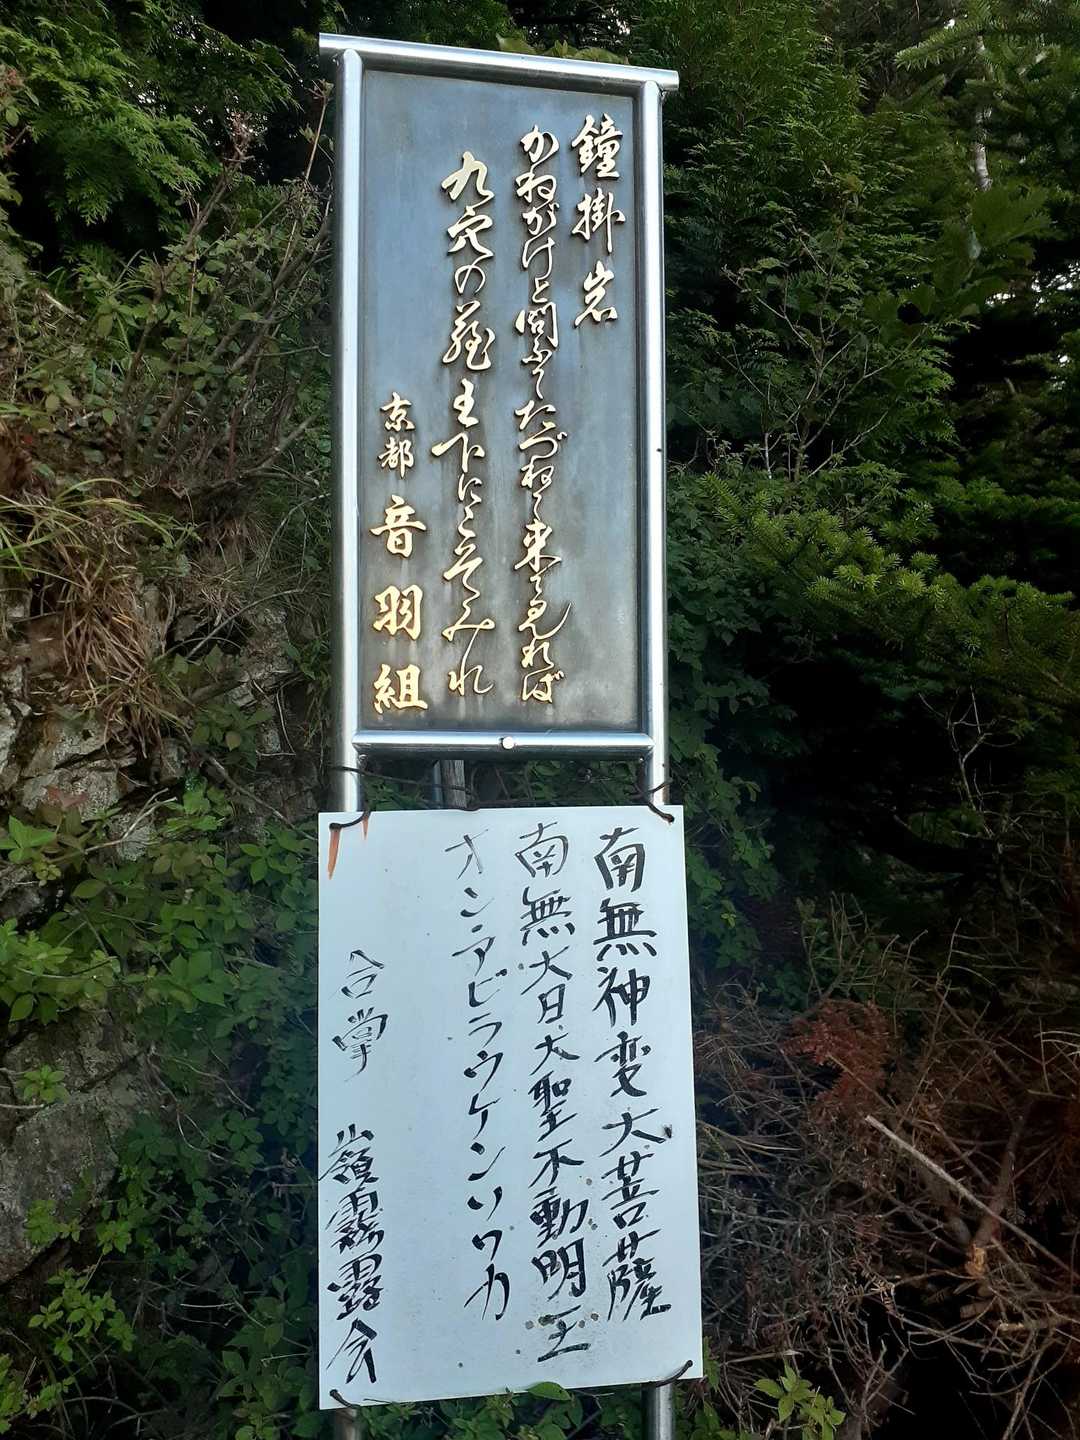 鐘掛岩
かねがけと問ふてたづねて来て見れば
九穴の蔵王下にこそみれ
京都 音羽組
南無神変大菩薩
南無大日大聖不動明王
オンアビラウケンソワカ
合掌 嶺霧露会